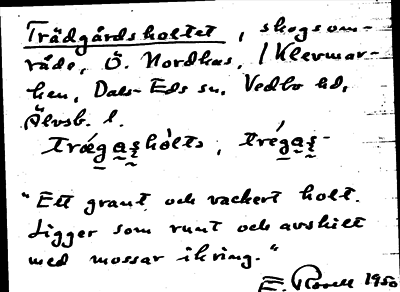 Trädgårdsholtet, skogsom-
råde, Ö. Nordhas, /Klevmar-
ken, Dals-Eds sn, Vedbo hd,
Älvsb. l.
"Ett grant och vackert holt.
Ligger som runt och avskilt
med mossar ikring."
E. 1950